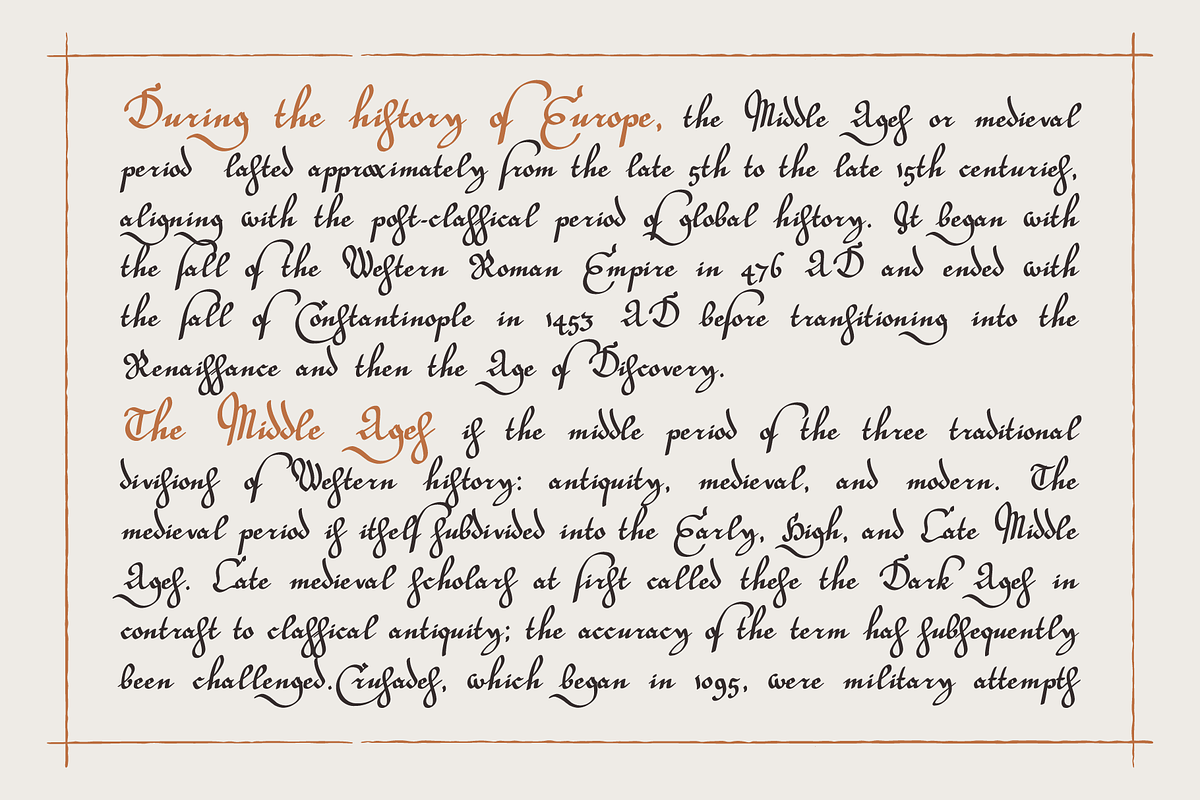 During the history of Europe, the Middle Ages or medieval
period lasted approximately from the late 5th to the late 15th centuries,
aligning with the post-classical period of global history. It began with
the fall of the Western Roman Empire in 476 AD and ended with
the fall of Constantinople in 1453 AD before transitioning into the
Renaissance and then the Age of Discovery.
The Middle Ages is the middle period of the three traditional
divisions of Western history: antiquity, medieval, and modern. The
medieval period is itself subdivided into the Early, High, and Late Middle
Ages. Late medieval scholars at first called these the Dark Ages in
contrast to classical antiquity; the accuracy of the term has subsequently
been challenged. Crusades, which began in 1095, were military attempts